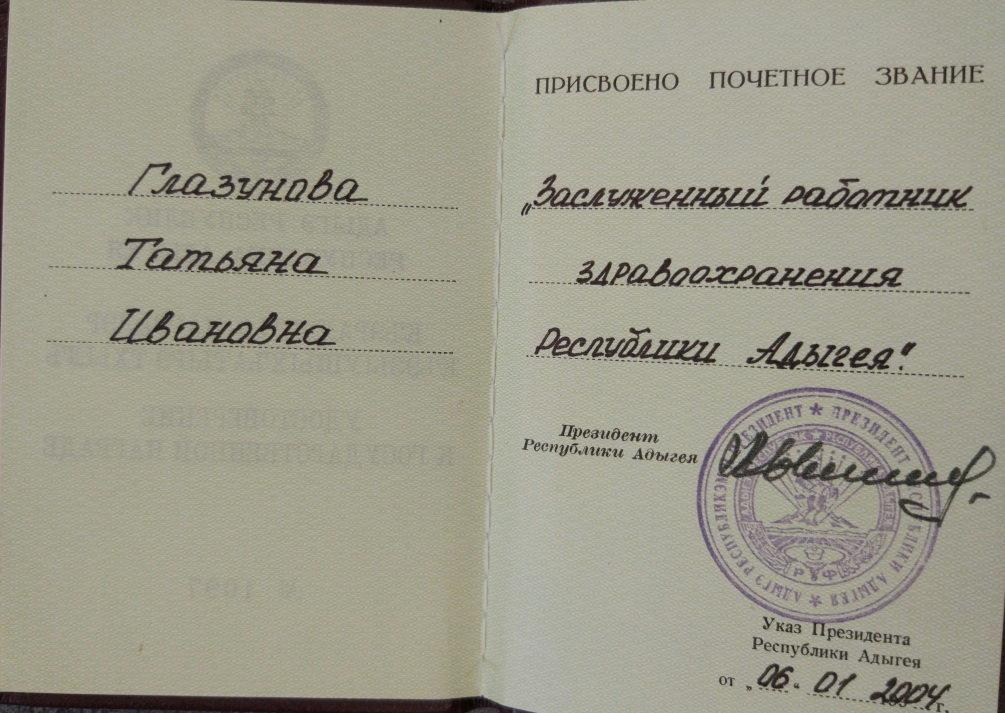 Глазунова
Татьяна
Ивановна
ПРИСВОЕНО ПОЧЕТНОЕ ЗВАНИЕ
„Заслуженный работник
здравоохранения
Республики Адыгея".
Президент
Республики Адыгея
ПРЕЗИДЕНТ ★ ПРЕЗИДЕНТ РЕСПУБЛИКИ АДЫГЕЯ ★ АДЫГЭ РЕСПУБЛИКЭМ
Р У Ф
Указ Президента
Республики Адыгея
от „06" 01 2004 г.